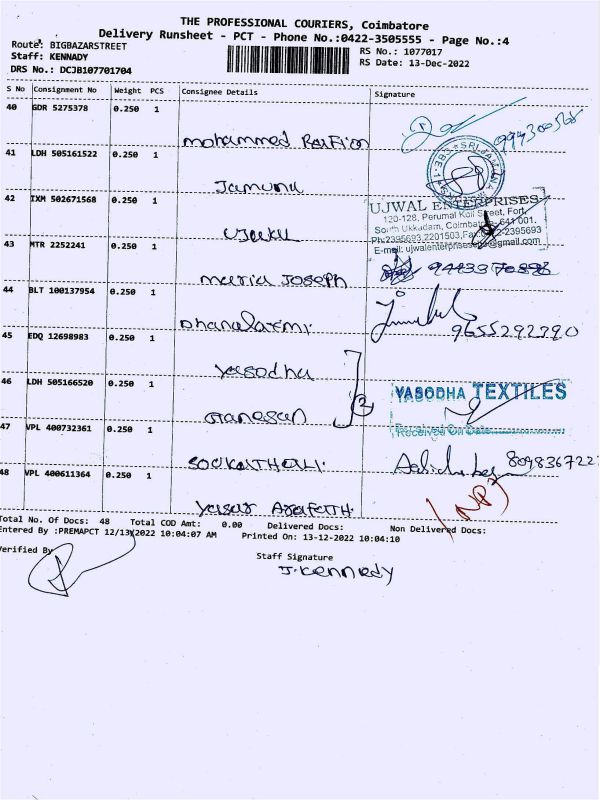 THE PROFESSIONAL COURIERS, Coimbatore
Delivery Runsheet - PCT - Phone No.:0422-3505555 - Page No.:4
Route: BIGBAZARSTREET
Staff: KENNADY
DRS No.: DCJB107701704
RS No.: 1077017
RS Date: 13-Dec-2022
S No Consignment No Weight PCS Consignee Details Signature
40 GDR 5275378 0.250 1
mohammed
41 LDH 505161522 0.250 1
Jamuna
42 IXM 502671568 0.250 1
UJWAL ENTERPRISES
120-128, Perumal Koil Street, Fort,
South Ukkadam, Coimbatore-641 001.
E-mail: ujwalenterprisescbe@gmail.com
43 MTR 2252241 0.250 1
maria Joseph
44 BLT 100137954 0.250 1
Dhanalaxmi.
9655292290
45 EDQ 12698983 0.250 1
yasodha
46 LDH 505166520 0.250 1
Ganesan
2
YASODHA TEXTILES
Received On Date
47 VPL 400732361 0.250 1
809836722
48 VPL 400611364 0.250 1
yasar Arafath.
(NP)
Total No. Of Docs: 48 Total COD Amt: 0.00 Delivered Docs: Non Delivered Docs:
Entered By :PREMAPCT 12/13/2022 10:04:07 AM Printed On: 13-12-2022 10:04:10
Verified By
Staff Signature
J. Kennedy